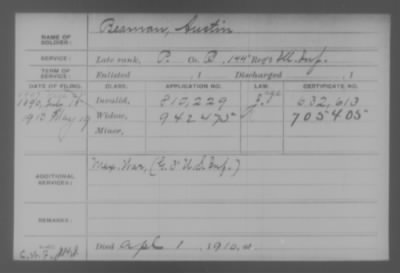 NAME OF SOLDIER: Beaman, Austin
SERVICE: Late rank, P. Co. D, 144" Reg't Ill. Inf.
TERM OF SERVICE: Enlisted , 1 Discharged , 1
DATE OF FILING. CLASS. APPLICATION NO. LAW. CERTIFICATE NO.
1890, July 18 Invalid, 810,229 632,613
1910 May 19 Widow, 942475 705405
Minor,
ADDITIONAL SERVICES: Mex. War, (G. 5" U.S. Inf.)
REMARKS:
Died Apl 1, 1910,